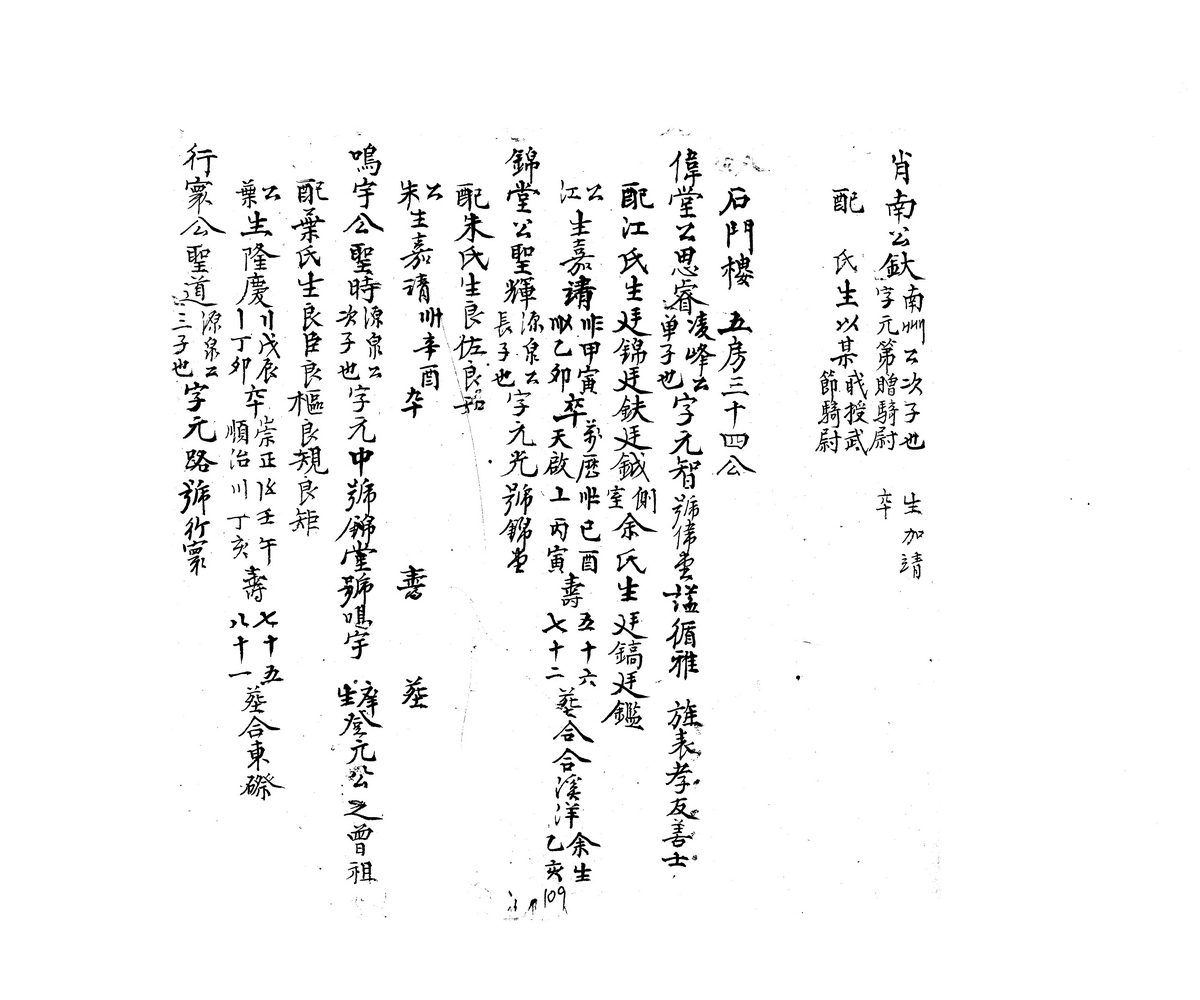 肖南公鈦南洲公次子也字元第贈騎尉 生加靖 卒
配 氏生以某戝授武節騎尉
石門樓 五房三十四公
偉堂公思睿凌峰公单子也字元智號偉堂謚循雅 旌表孝友善士
配江氏生廷錦廷鈇廷鉞側室余氏生廷鎬廷鑑
公江生嘉靖〣〣甲寅〣〤乙卯卒萬厯〣〣己酉天啟〦丙寅壽五十六七十二葬合合溪洋余生乙亥
錦堂公聖輝源泉公長子也字元光號錦堂
配朱氏生良佐良
公朱生嘉靖〣〣辛酉 卒 壽 葬
鳴宇公聖時源泉公次子也字元中號錦堂號鳴宇 庠生登元公之曾祖
配葉氏生良臣良樞良規良矩
公葉生隆慶〢戊辰〡丁卯卒崇正〸〥壬午順治〣丁亥壽七十五八十一葬合東磜
行寰公聖道源泉公三子也字元路號行寰
109